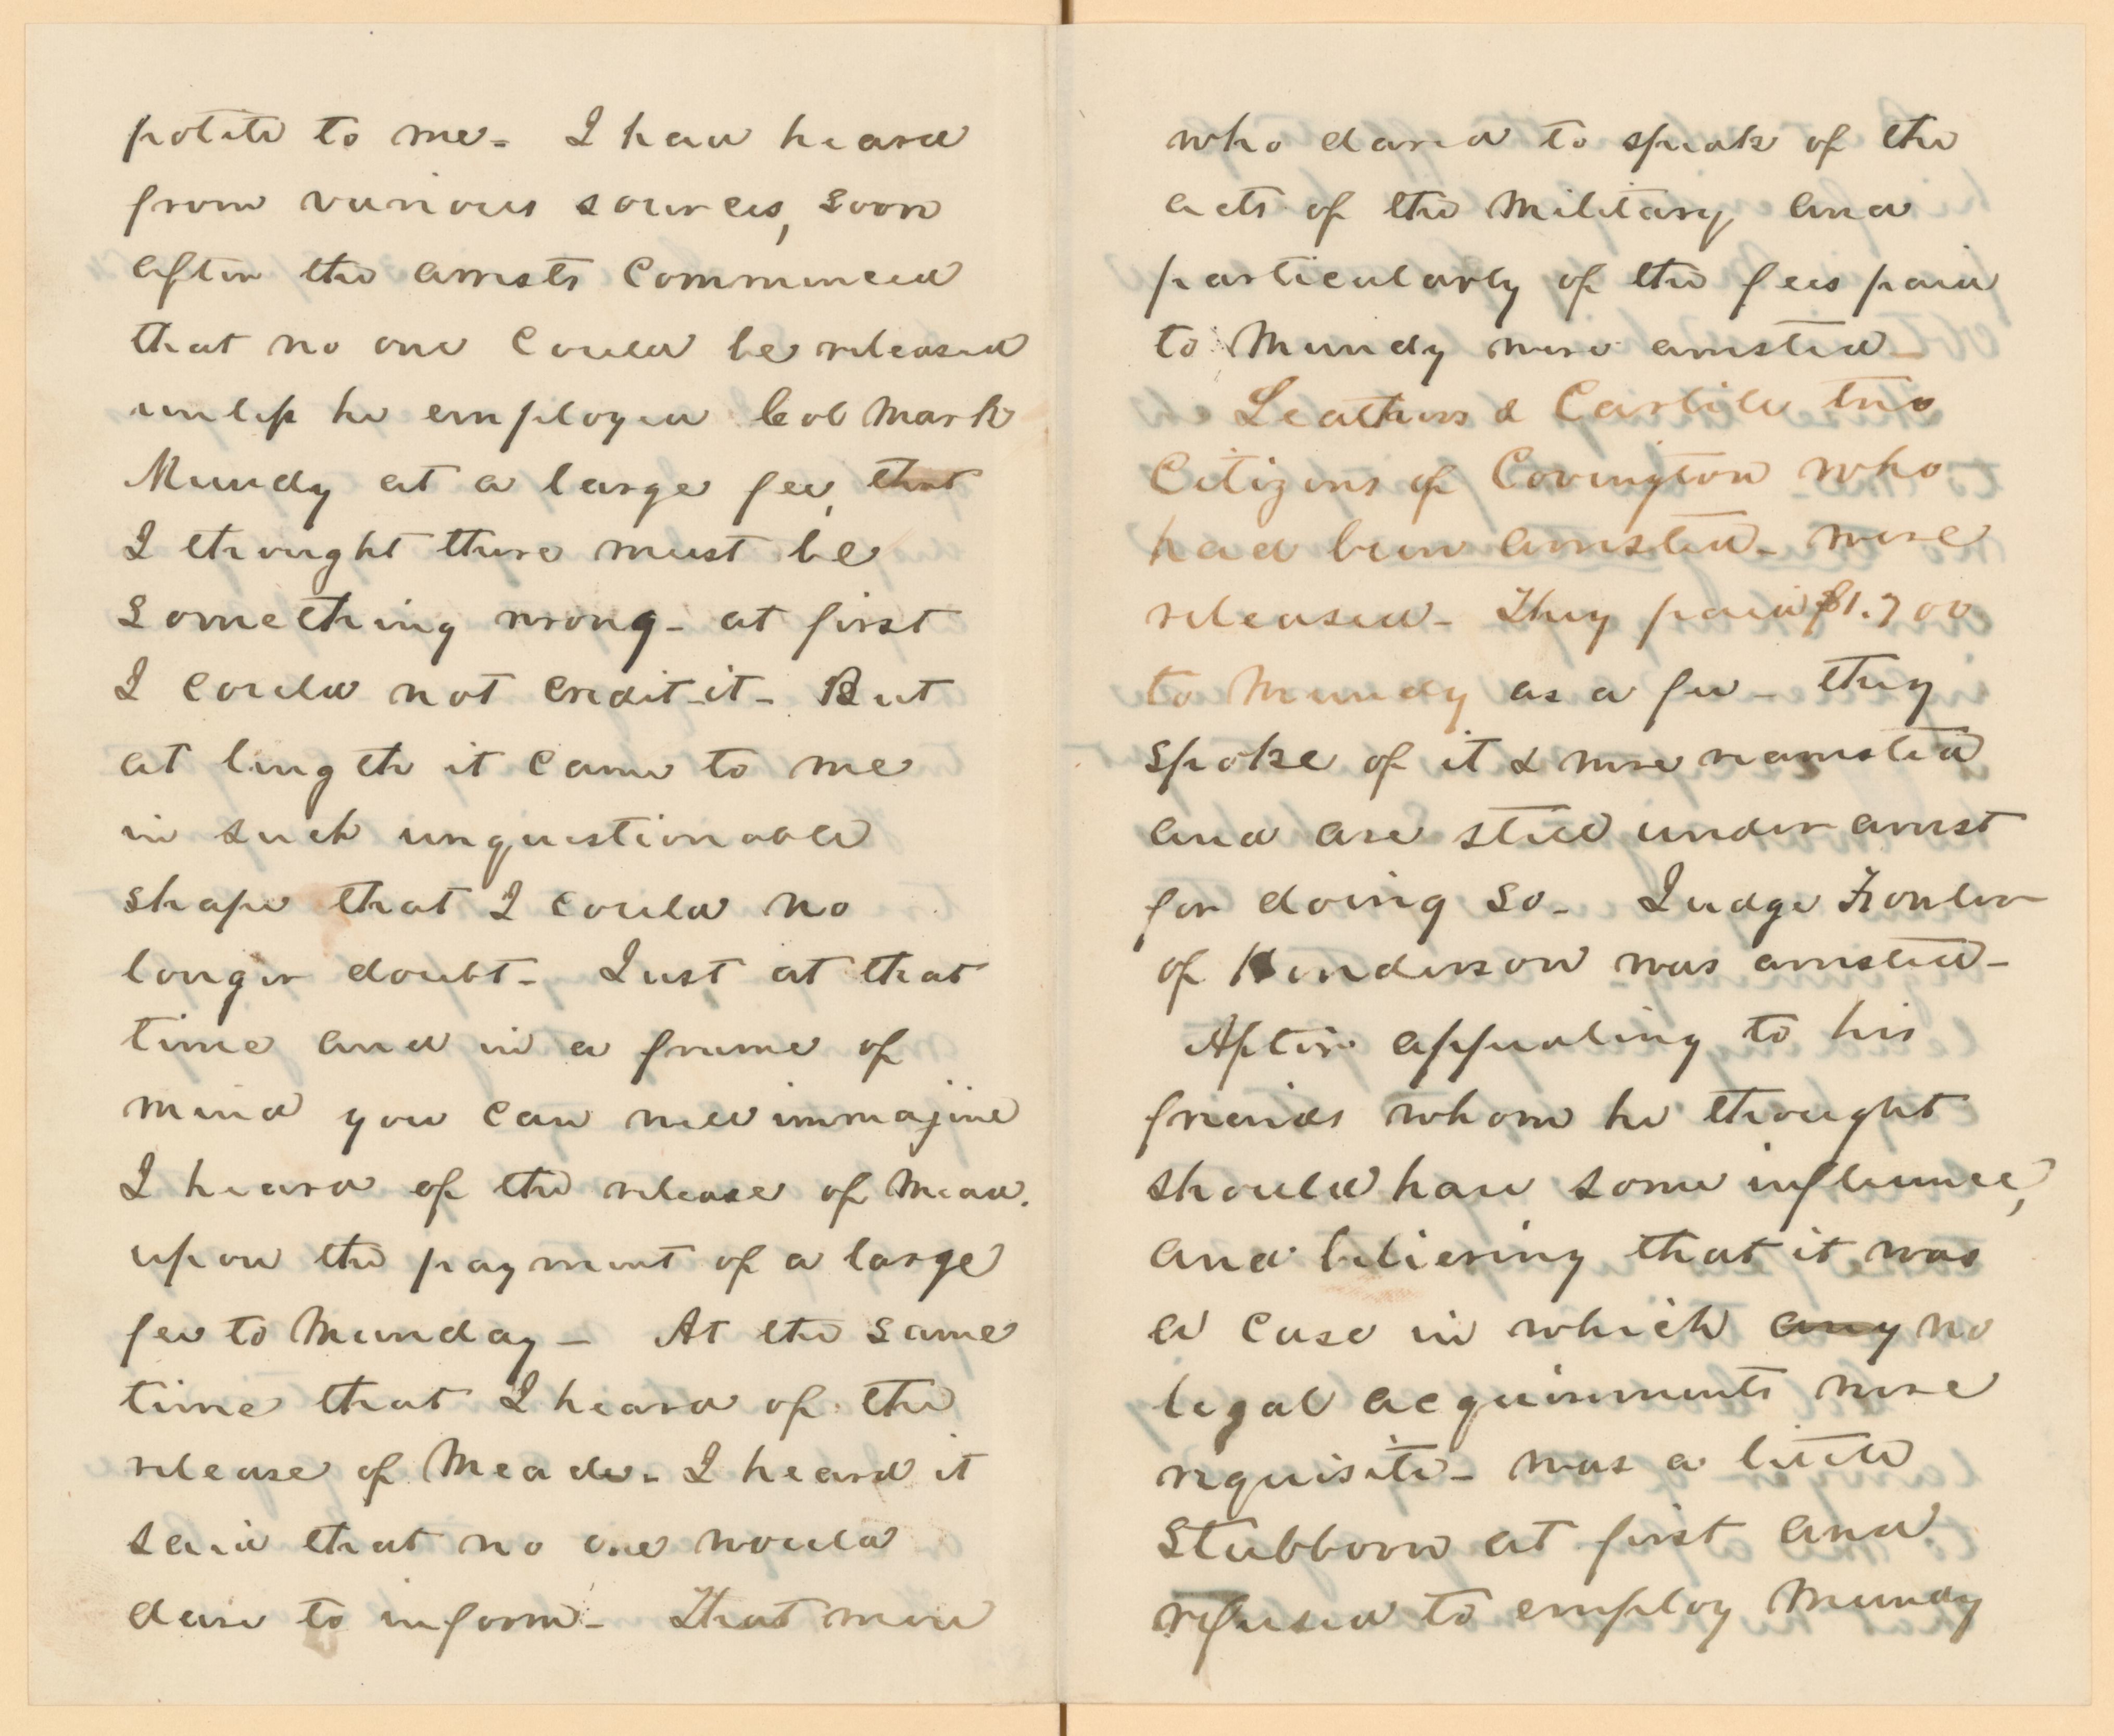 polite to me - I had heard
from various sources, soon
after the arrests commenced
that no one could be released
unless he employed Col Mark
Mundy at a large fee, that
I thought there must be
something wrong - at first
I could not credit it - But
at length it came to me
in such unquestionable
shape that I could no
longer doubt - Just at that
time and in a frame of
mind you can well immajine
I heard of the release of Mead.
upon the payment of a large
fee to Munday - At the same
time that I heard of the
release of Meade - I heard it
said that no one would
dare to inform - That men
who dared to speak of the
acts of the Military and
particularly of the fees paid
to Mundy were arrested -
Leathers & Carlile two
Citizens of Covington who
had been arrested - were
released - They paid $1.700
to Mundy as a fee - they
spoke of it & were rearrested
and are still under arrest
for doing so - Judge Fowler
of Henderson was arrested -
After appealing to his
friends whom he thought
should have some influence,
and believing that it was
a case in which any no
legal acquirements were
requisite - was a little
Stubborn at first and
refused to employ Mundy